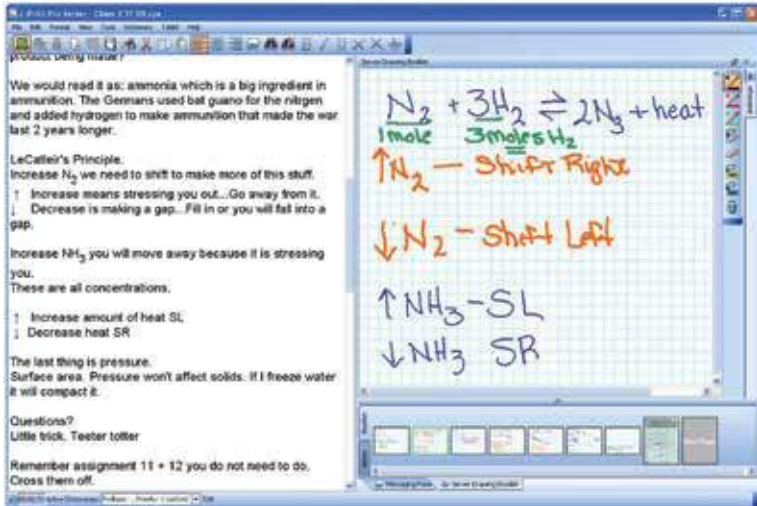 File Edit Format View Tools Dictionary Tablet Help
product being made?
We would read it as: ammonia which is a big ingredient in
ammunition. The Germans used bat guano for the nitrgen
and added hydrogen to make ammunition that made the war
last 2 years longer.
LeCatleir's Principle.
Increase N2 we need to shift to make more of this stuff.
↑ Increase means stressing you out...Go away from it.
↓ Decrease is making a gap...Fill in or you will fall into a
gap.
Increase NH3 you will move away because it is stressing
you.
These are all concentrations.
↑ Increase amount of heat SL
↓ Decrease heat SR
The last thing is pressure.
Surface area. Pressure won't affect solids. If I freeze water
it will compact it.
Questions?
Little trick. Teeter totter
Remember assignment 11 + 12 you do not need to do.
Cross them off.
Server Drawing Booklet
N2 + 3H2 ⇌ 2N3 + heat
1mole 3moles H2
↑N2 - Shift Right
↓N2 - Shift Left
↑NH3 - SL
↓NH3 SR
Messaging Pane Server Drawing Booklet